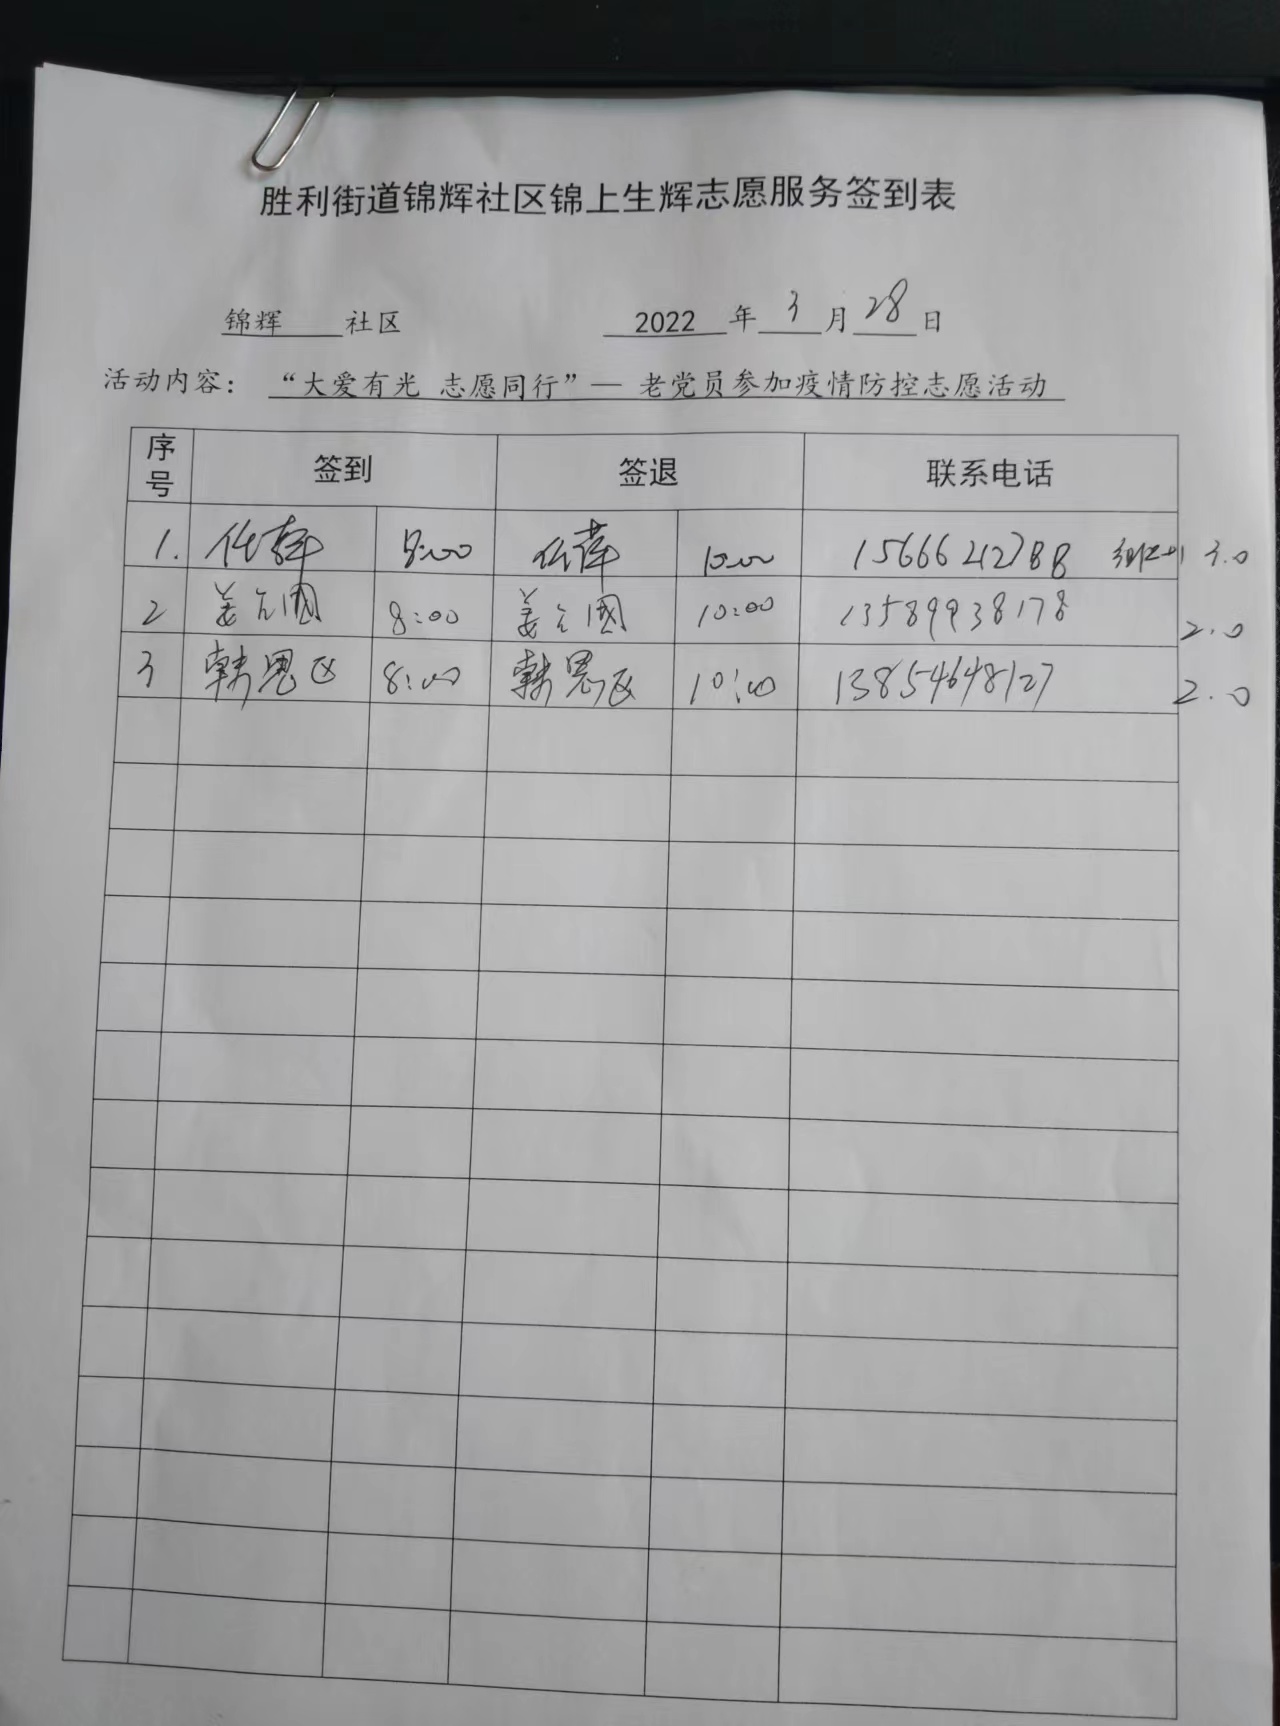 胜利街道锦辉社区锦上生辉志愿服务签到表
锦辉 社区 2022 年 3 月 28 日
活动内容： “大爱有光 志愿同行”— 老党员参加疫情防控志愿活动
序号 签到 签退 联系电话
1. 8:00 10:00 15666212788 3.0
2 姜 國 8:00 姜 國 10:00 13589938178 2.0
3 韩恩 8:00 韩恩 10:00 13854648127 2.0